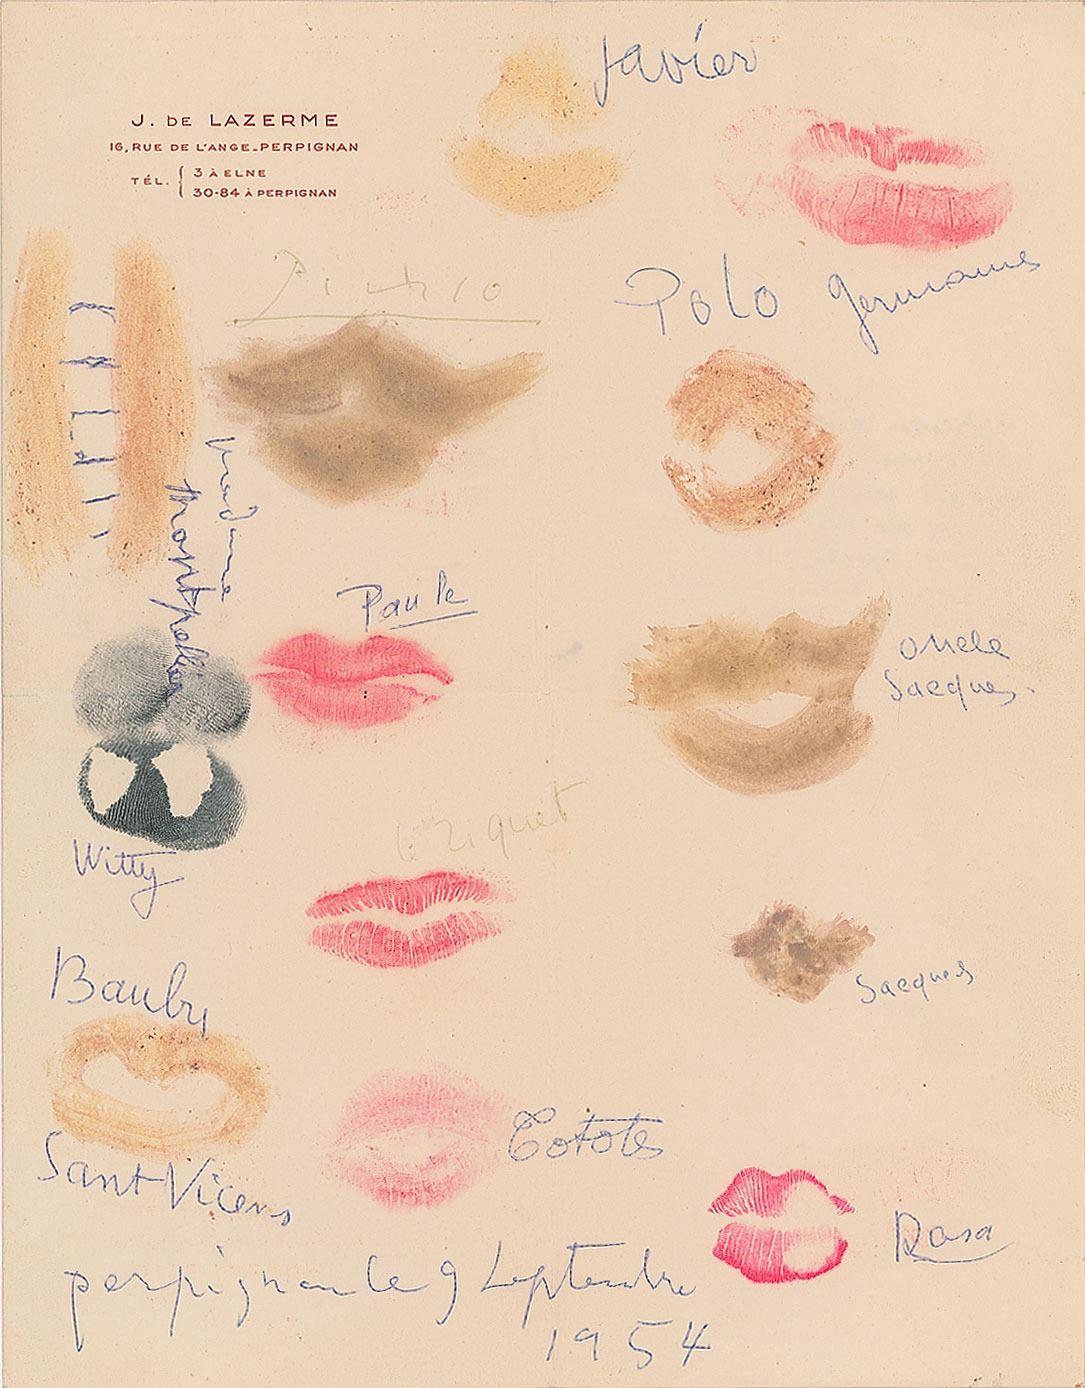 Javier
J. DE LAZERME
16, RUE DE L'ANGE_PERPIGNAN
TÉL. { 3 À ELNE
30-84 À PERPIGNAN
Picasso
Polo
Germaine
madame
montpellier
Paule
oncle
Jacques.
Witty
le Ziquet
Jacques
Bauby
Totote
Sant Vicens
Rosa
perpignan le 9 Septembre
1954